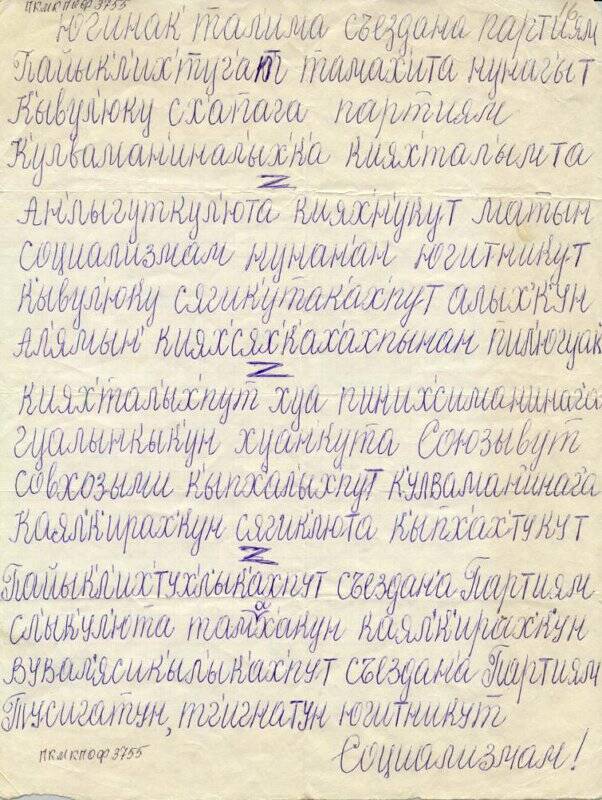 ПКМКПОФ3755
16
Югинак' талима съездана партиям
Пайык'л'их'туг'ат тамах'ита нунаг'ыт
К'ывул'юку схапага партиям
К'улваман'инал'ых'к'а киях'тал'ымта
Z
Ан'лыгуткул'юта киях'н'укут матын
социализмам нунан'ан югитникут
к'ывул'юку сягик'утак'ах'пут алых'кун
Ал'ямын' киях'сях'к'ах'ахпынан пил'югуак
Z
киях'тал'ых'пут хуа пиних'симан'инаг'а
гуалынкыкун хуанкута Союзывут
совхозыми к'ыпхал'ых'пут к'улваман'инаг'а
Каял'к'ирах'кун сягик'люта к'ыпх'ах'тукут
Z
Пайык'л'их'тух'лык'ах'пут съездан'а Партиям
слык'ул'юта тамах'акун каял'к'ирах'кун
вувал'ясик'ыл'ык'ах'пут съездан'а Партиям
Тусигатун, тг'игнатун югитникут
Социализмам!
ПКМКПОФ3755